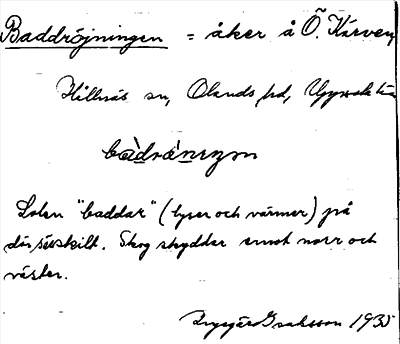 Baddröjningen = åker å Ö. Kärven,
Hållnäs sn, Olands hd, Uppsala län
bàdrǻnızən
Solen "baddar" (lyser och värmer) på
där särskilt. Skog skyddar emot norr och
väster.
Ingegärd Isaksson 1935